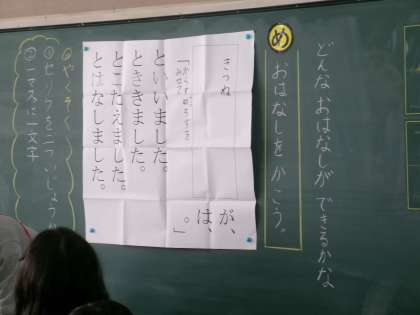 どんな おはなしが できるかな
め
おはなしを かこう。
が、
は、
。」
きつね
「
といいました。
とききました。
とこたえました。
とはなしました。
やくそく
①セリフを二ついじょうか
②一マスに一文字